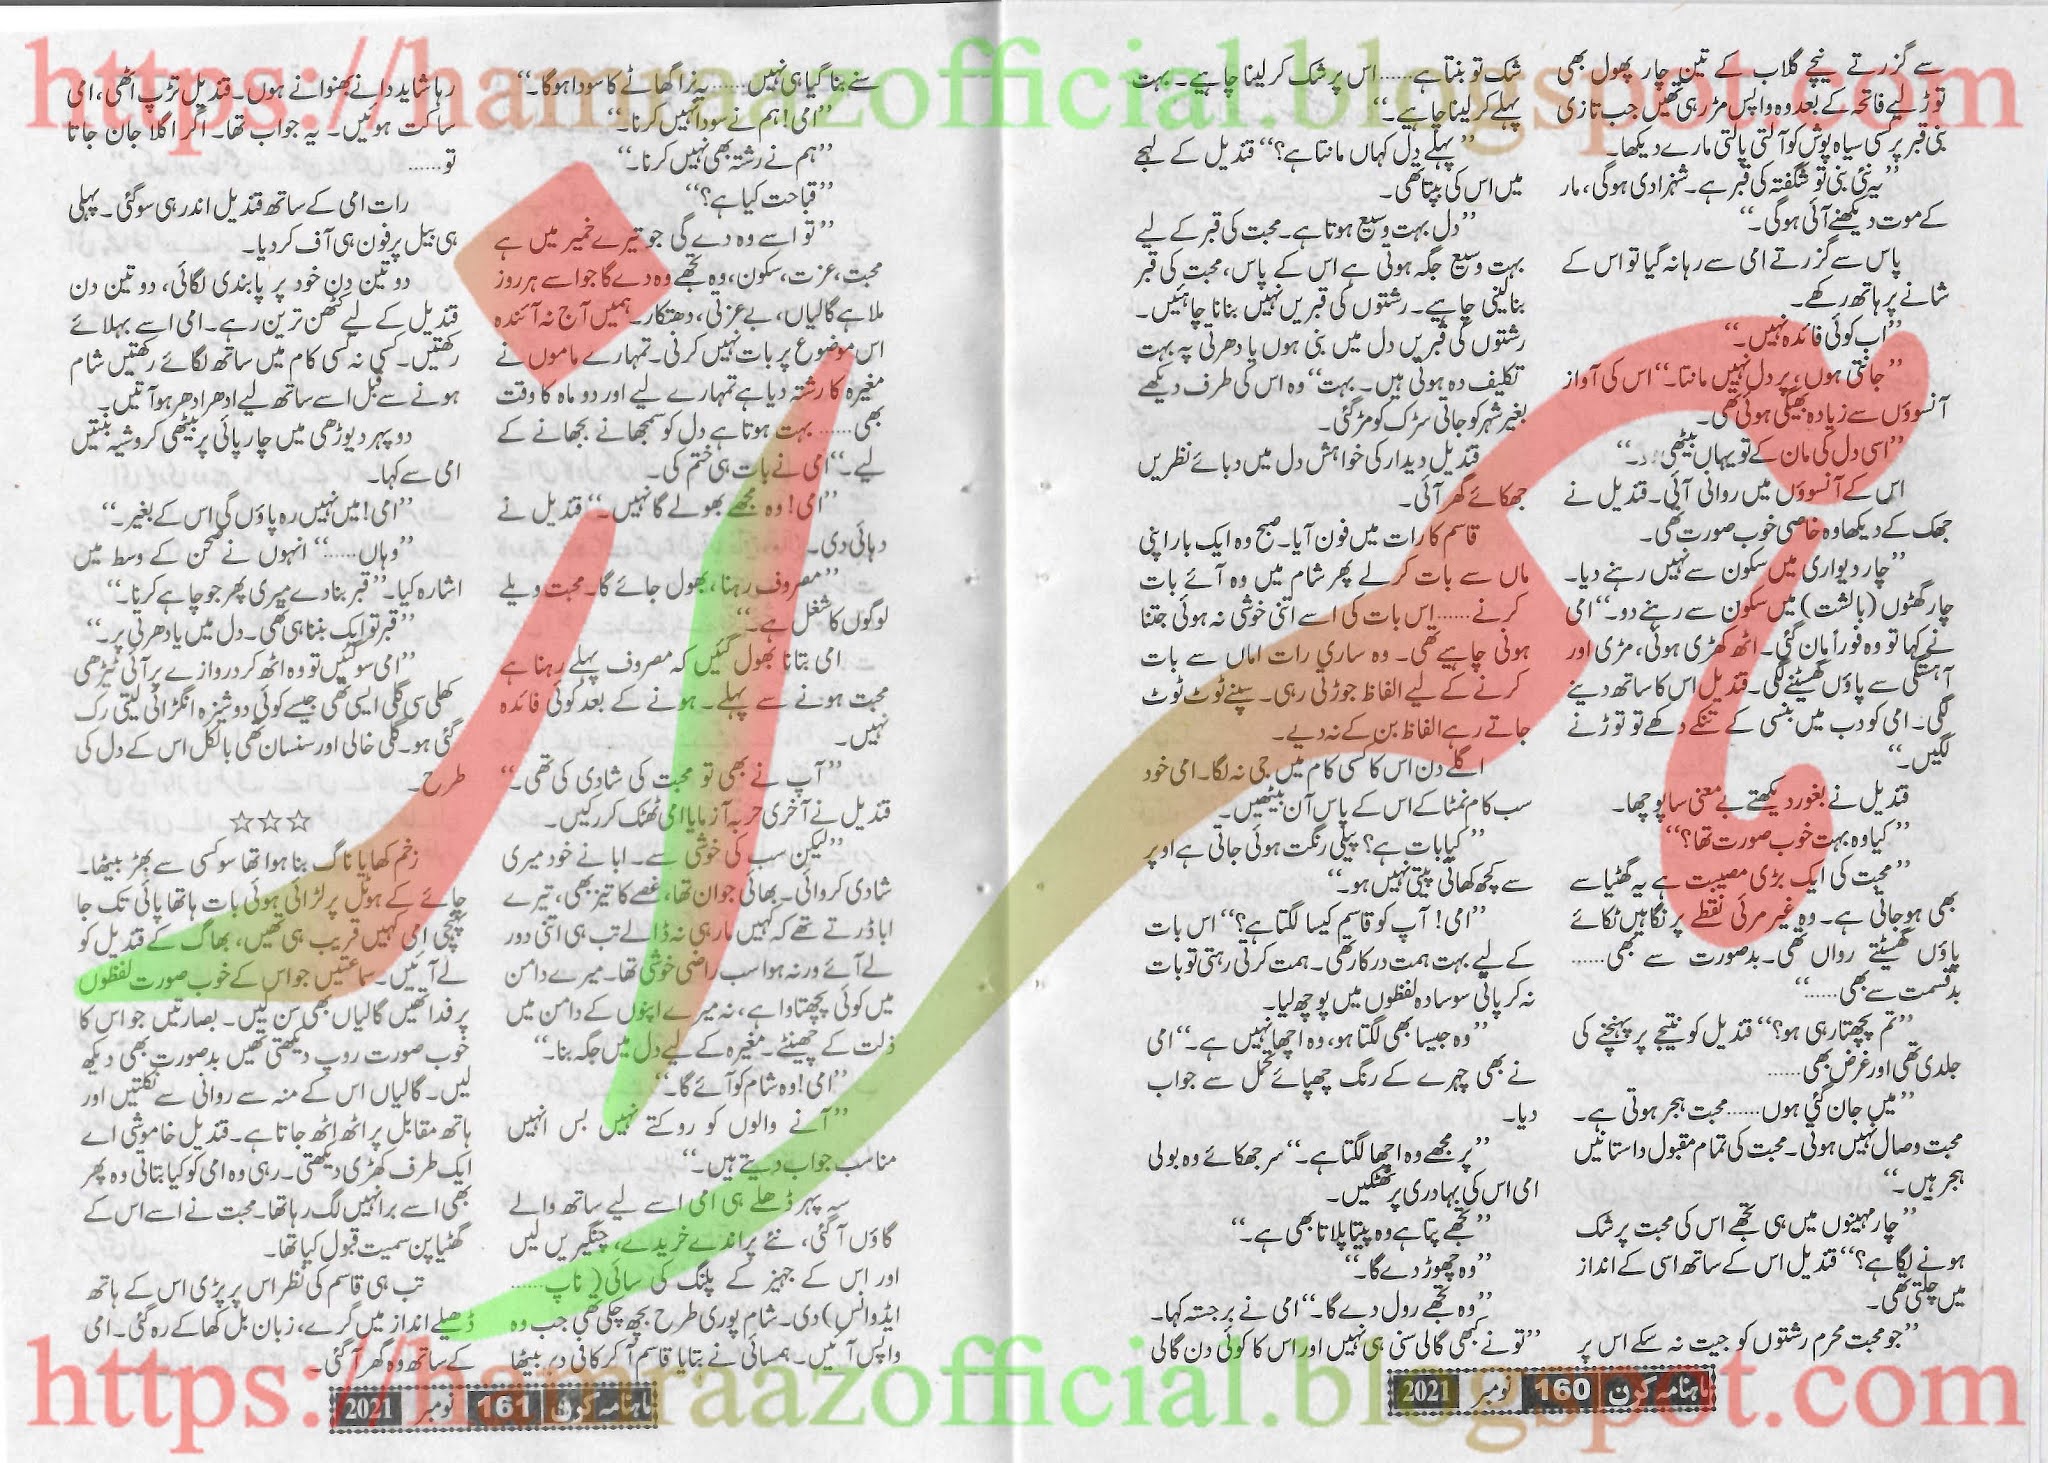 https://hamraazofficial.blogspot.com
سے گزرتے نیچے گلاب کے تین چار پھول بھی
توڑ لیے فاتحہ کے بعد وہ واپس مڑ رہی تھیں جب تازی
بنی قبر پر کسی سیاہ پوش کو آلتی پالتی مارے دیکھا۔
’’یہ نئی بنی تو شگفتہ کی قبر ہے۔ شہزادی ہوگی، مار
کے موت دیکھنے آئی ہوگی۔‘‘
پاس سے گزرتے امی سے رہا نہ گیا تو اس کے
شانے پر ہاتھ رکھے۔
’’اب کوئی فائدہ نہیں۔‘‘
’’جانتی ہوں، پر دل نہیں مانتا۔‘‘ اس کی آواز
آنسوؤں سے زیادہ بھیگی ہوئی تھی۔
’’اسی دل کی مان کے تو یہاں بیٹھی ہو۔‘‘
اس کے آنسوؤں میں روانی آئی۔ قندیل نے
جھک کے دیکھا وہ خاصی خوب صورت تھی۔
’’چار دیواری میں سکون سے نہیں رہنے دیا۔
چار گھٹوں (بالشت) میں سکون سے رہنے دو۔‘‘ امی
نے کہا تو وہ فوراً مان گئی۔ اٹھ کھڑی ہوئی، مڑی اور
آہستگی سے پاؤں گھسیٹنے لگی۔ قندیل اس کا ساتھ دینے
لگی۔ امی کو دب میں بنسی کے تنکے دکھے تو توڑنے
لگیں۔‘‘
قندیل نے بغور دیکھتے بے معنی سا پوچھا۔
’’کیا وہ بہت خوب صورت تھا؟‘‘
’’محبت کی ایک بڑی مصیبت ہے یہ گھٹیا سے
بھی ہو جاتی ہے۔ وہ غیر مرئی نقطے پر نگاہیں ٹکائے
پاؤں گھسیٹتے رواں تھی۔ بدصورت سے بھی......
بدقسمت سے بھی......‘‘
’’تم پچھتا رہی ہو؟‘‘ قندیل کو نتیجے پر پہنچنے کی
جلدی تھی اور غرض بھی......
’’میں جان گئی ہوں...... محبت ہجر ہوتی ہے۔
محبت وصال نہیں ہوتی۔ محبت کی تمام مقبول داستانیں
ہجر ہیں۔‘‘
’’چار مہینوں میں ہی تجھے اس کی محبت پر شک
ہونے لگا ہے؟‘‘ قندیل اس کے ساتھ اسی کے انداز
میں چلتی تھی۔
’’جو محبت محرم رشتوں کو جیت نہ سکے اس پر
شک تو بنتا ہے...... اس پر شک کر لینا چاہیے۔ بہت
پہلے کر لینا چاہیے۔‘‘
’’پہلے دل کہاں مانتا ہے؟‘‘ قندیل کے لہجے
میں اس کی بپتا تھی۔
’’دل بہت وسیع ہوتا ہے۔ محبت کی قبر کے لیے
بہت وسیع جگہ ہوتی ہے اس کے پاس، محبت کی قبر
بنا لینی چاہیے۔ رشتوں کی قبریں نہیں بنانا چاہئیں۔
رشتوں کی قبریں دل میں بنی ہوں یا دھرتی پہ بہت
تکلیف دہ ہوتی ہیں۔ بہت‘‘ وہ اس کی طرف دیکھے
بغیر شہر کو جاتی سڑک کو مڑ گئی۔
قندیل دیدار کی خواہش دل میں دبائے نظریں
جھکائے گھر آئی۔
قاسم کا رات میں فون آیا۔ صبح وہ ایک بار اپنی
ماں سے بات کر لے پھر شام میں وہ آئے بات
کرنے...... اس بات کی اسے اتنی خوشی نہ ہوئی جتنا
ہونی چاہیے تھی۔ وہ ساری رات اماں سے بات
کرنے کے لیے الفاظ جوڑتی رہی۔ سپنے ٹوٹ ٹوٹ
جاتے رہے الفاظ بن کے نہ دیے۔
اگلے دن اس کا کسی کام میں جی نہ لگا۔ امی خود
سب کام نمٹا کے اس کے پاس آن بیٹھیں۔
’’کیا بات ہے؟ پیلی رنگت ہوئی جاتی ہے اوپر
سے کچھ کھاتی پیتی نہیں ہو۔‘‘
’’امی! آپ کو قاسم کیسا لگتا ہے؟‘‘ اس بات
کے لیے بہت ہمت درکار تھی۔ ہمت کرتی رہتی تو بات
نہ کر پاتی سو سادہ لفظوں میں پوچھ لیا۔
’’وہ جیسا بھی لگتا ہو، وہ اچھا نہیں ہے۔‘‘ امی
نے بھی چہرے کے رنگ چھپائے تحمل سے جواب
دیا۔
’’پر مجھے وہ اچھا لگتا ہے۔‘‘ سر جھکائے وہ بولی
امی اس کی بہادری پر ٹھٹکیں۔
’’تجھے پتا ہے وہ پیتا پلاتا بھی ہے۔‘‘
’’وہ چھوڑ دے گا۔‘‘
’’وہ تجھے رول دے گا۔‘‘ امی نے برجستہ کہا۔
’’تو نے کبھی گالی سنی ہی نہیں اور اس کا کوئی دن گالی
ماہنامہ کرن 160 نومبر 2021
سنے بنا گیا ہی نہیں...... یہ نرا گھاٹے کا سودا ہوگا۔‘‘
’’امی! ہم نے سودا نہیں کرنا۔‘‘
’’ہم نے رشتہ بھی نہیں کرنا۔‘‘
’’قباحت کیا ہے؟‘‘
’’تو اسے وہ دے گی جو تیرے خمیر میں ہے
محبت، عزت، سکون، وہ تجھے وہ دے گا جو اسے ہر روز
ملا ہے گالیاں، بے عزتی، دھتکار۔ ہمیں آج نہ آئندہ
اس موضوع پر بات نہیں کرنی۔ تمہارے ماموں نے
مغیرہ کا رشتہ دیا ہے تمہارے لیے اور دو ماہ کا وقت
بھی...... بہت ہوتا ہے دل کو سمجھانے بجھانے کے
لیے۔‘‘ امی نے بات ہی ختم کی۔
’’امی! وہ مجھے بھولے گا نہیں۔‘‘ قندیل نے
دہائی دی۔
’’مصروف رہنا، بھول جائے گا۔ محبت ویلے
لوگوں کا شغل ہے۔‘‘
امی بتانا بھول گئیں کہ مصروف پہلے رہنا ہے
محبت ہونے سے پہلے۔ ہونے کے بعد کوئی فائدہ
نہیں۔
’’آپ نے بھی تو محبت کی شادی کی تھی۔‘‘
قندیل نے آخری حربہ آزمایا امی ٹھٹک کر رکیں۔
’’لیکن سب کی خوشی سے۔ ابا نے خود میری
شادی کروائی۔ بھائی جوان تھا، غصے کا تیز بھی، تیرے
ابا ڈرتے تھے کہ کہیں مار ہی نہ ڈالے تب ہی اتنی دور
لے آئے ورنہ ہوا سب راضی خوشی تھا۔ میرے دامن
میں کوئی پچھتاوا ہے، نہ میرے اپنوں کے دامن میں
ذلت کے چھینٹے۔ مغیرہ کے لیے دل میں جگہ بنا۔‘‘
’’امی! وہ شام کو آئے گا۔‘‘
’’آنے والوں کو روکتے نہیں بس انہیں
مناسب جواب دیتے ہیں۔‘‘
سہ پہر ڈھلے ہی امی اسے لیے ساتھ والے
گاؤں آ گئی، نئے پراندے خریدے، چنگیریں لیں
اور اس کے جہیز کے پلنگ کی سائی (ناپ......
ایڈوانس) دی۔ شام پوری طرح بجھ چکی تھی جب وہ
واپس آئیں۔ ہمسائی نے بتایا قاسم آ کر کافی دیر بیٹھا
رہا شاید دانے بھنوانے ہوں۔ قندیل تڑپ اٹھی، امی
ساکت ہوئیں۔ یہ جواب تھا۔ اگر اگلا جان جاتا
تو......
رات امی کے ساتھ قندیل اندر ہی سو گئی۔ پہلی
ہی بیل پر فون ہی آف کر دیا۔
دو تین دن خود پر پابندی لگائی، دو تین دن
قندیل کے لیے کٹھن ترین رہے۔ امی اسے بہلائے
رکھتیں۔ کسی نہ کسی کام میں ساتھ لگائے رکھتیں شام
ہونے سے قبل اسے ساتھ لیے ادھر ادھر ہو آتیں۔
دوپہر دیوڑھی میں چارپائی پر بیٹھی کروشیہ بنتیں
امی سے کہا۔
’’امی! میں نہیں رہ پاؤں گی اس کے بغیر۔‘‘
’’وہاں......‘‘ انہوں نے صحن کے وسط میں
اشارہ کیا۔ ’’قبر بنا دے میری پھر جو چاہے کرنا۔‘‘
’’قبر تو ایک بننا ہی تھی۔ دل میں یا دھرتی پر۔‘‘
’’امی سو گئیں تو وہ اٹھ کر دروازے پر آئی ٹیڑھی
کھلی سی گلی ایسی تھی جیسے کوئی دوشیزہ انگڑائی لیتی رک
گئی ہو۔ گلی خالی اور سنسان تھی بالکل اس کے دل کی
طرح۔
☆☆☆
زخم کھایا ناگ بنا ہوا تھا سو کسی سے بھڑ بیٹھا۔
چائے کے ہوٹل پر لڑائی ہوئی بات ہاتھا پائی تک جا
پہنچی امی کہیں قریب ہی تھیں، بھاگ کے قندیل کو
لے آئیں۔ سماعتیں جو اس کے خوب صورت لفظوں
پر فدا تھیں گالیاں بھی سن لیں۔ بصارتیں جو اس کا
خوب صورت روپ دیکھتی تھیں بدصورت بھی دیکھ
لیں۔ گالیاں اس کے منہ سے روانی سے نکلتیں اور
ہاتھ مقابل پر اٹھ اٹھ جاتا ہے۔ قندیل خاموشی اے
ایک طرف کھڑی دیکھتی۔ رہی وہ امی کو کیا بتاتی وہ پھر
بھی اسے برا نہیں لگ رہا تھا۔ محبت نے اسے اس کے
گھٹیا پن سمیت قبول کیا تھا۔
تب ہی قاسم کی نظر اس پر پڑی اس کے ہاتھ
ڈھیلے انداز میں گرے، زبان بل کھا کے رہ گئی۔ امی
کے ساتھ وہ گھر آ گئی۔
ماہنامہ کرن 161 نومبر 2021
ہمراز
https://hamraazofficial.blogspot.com